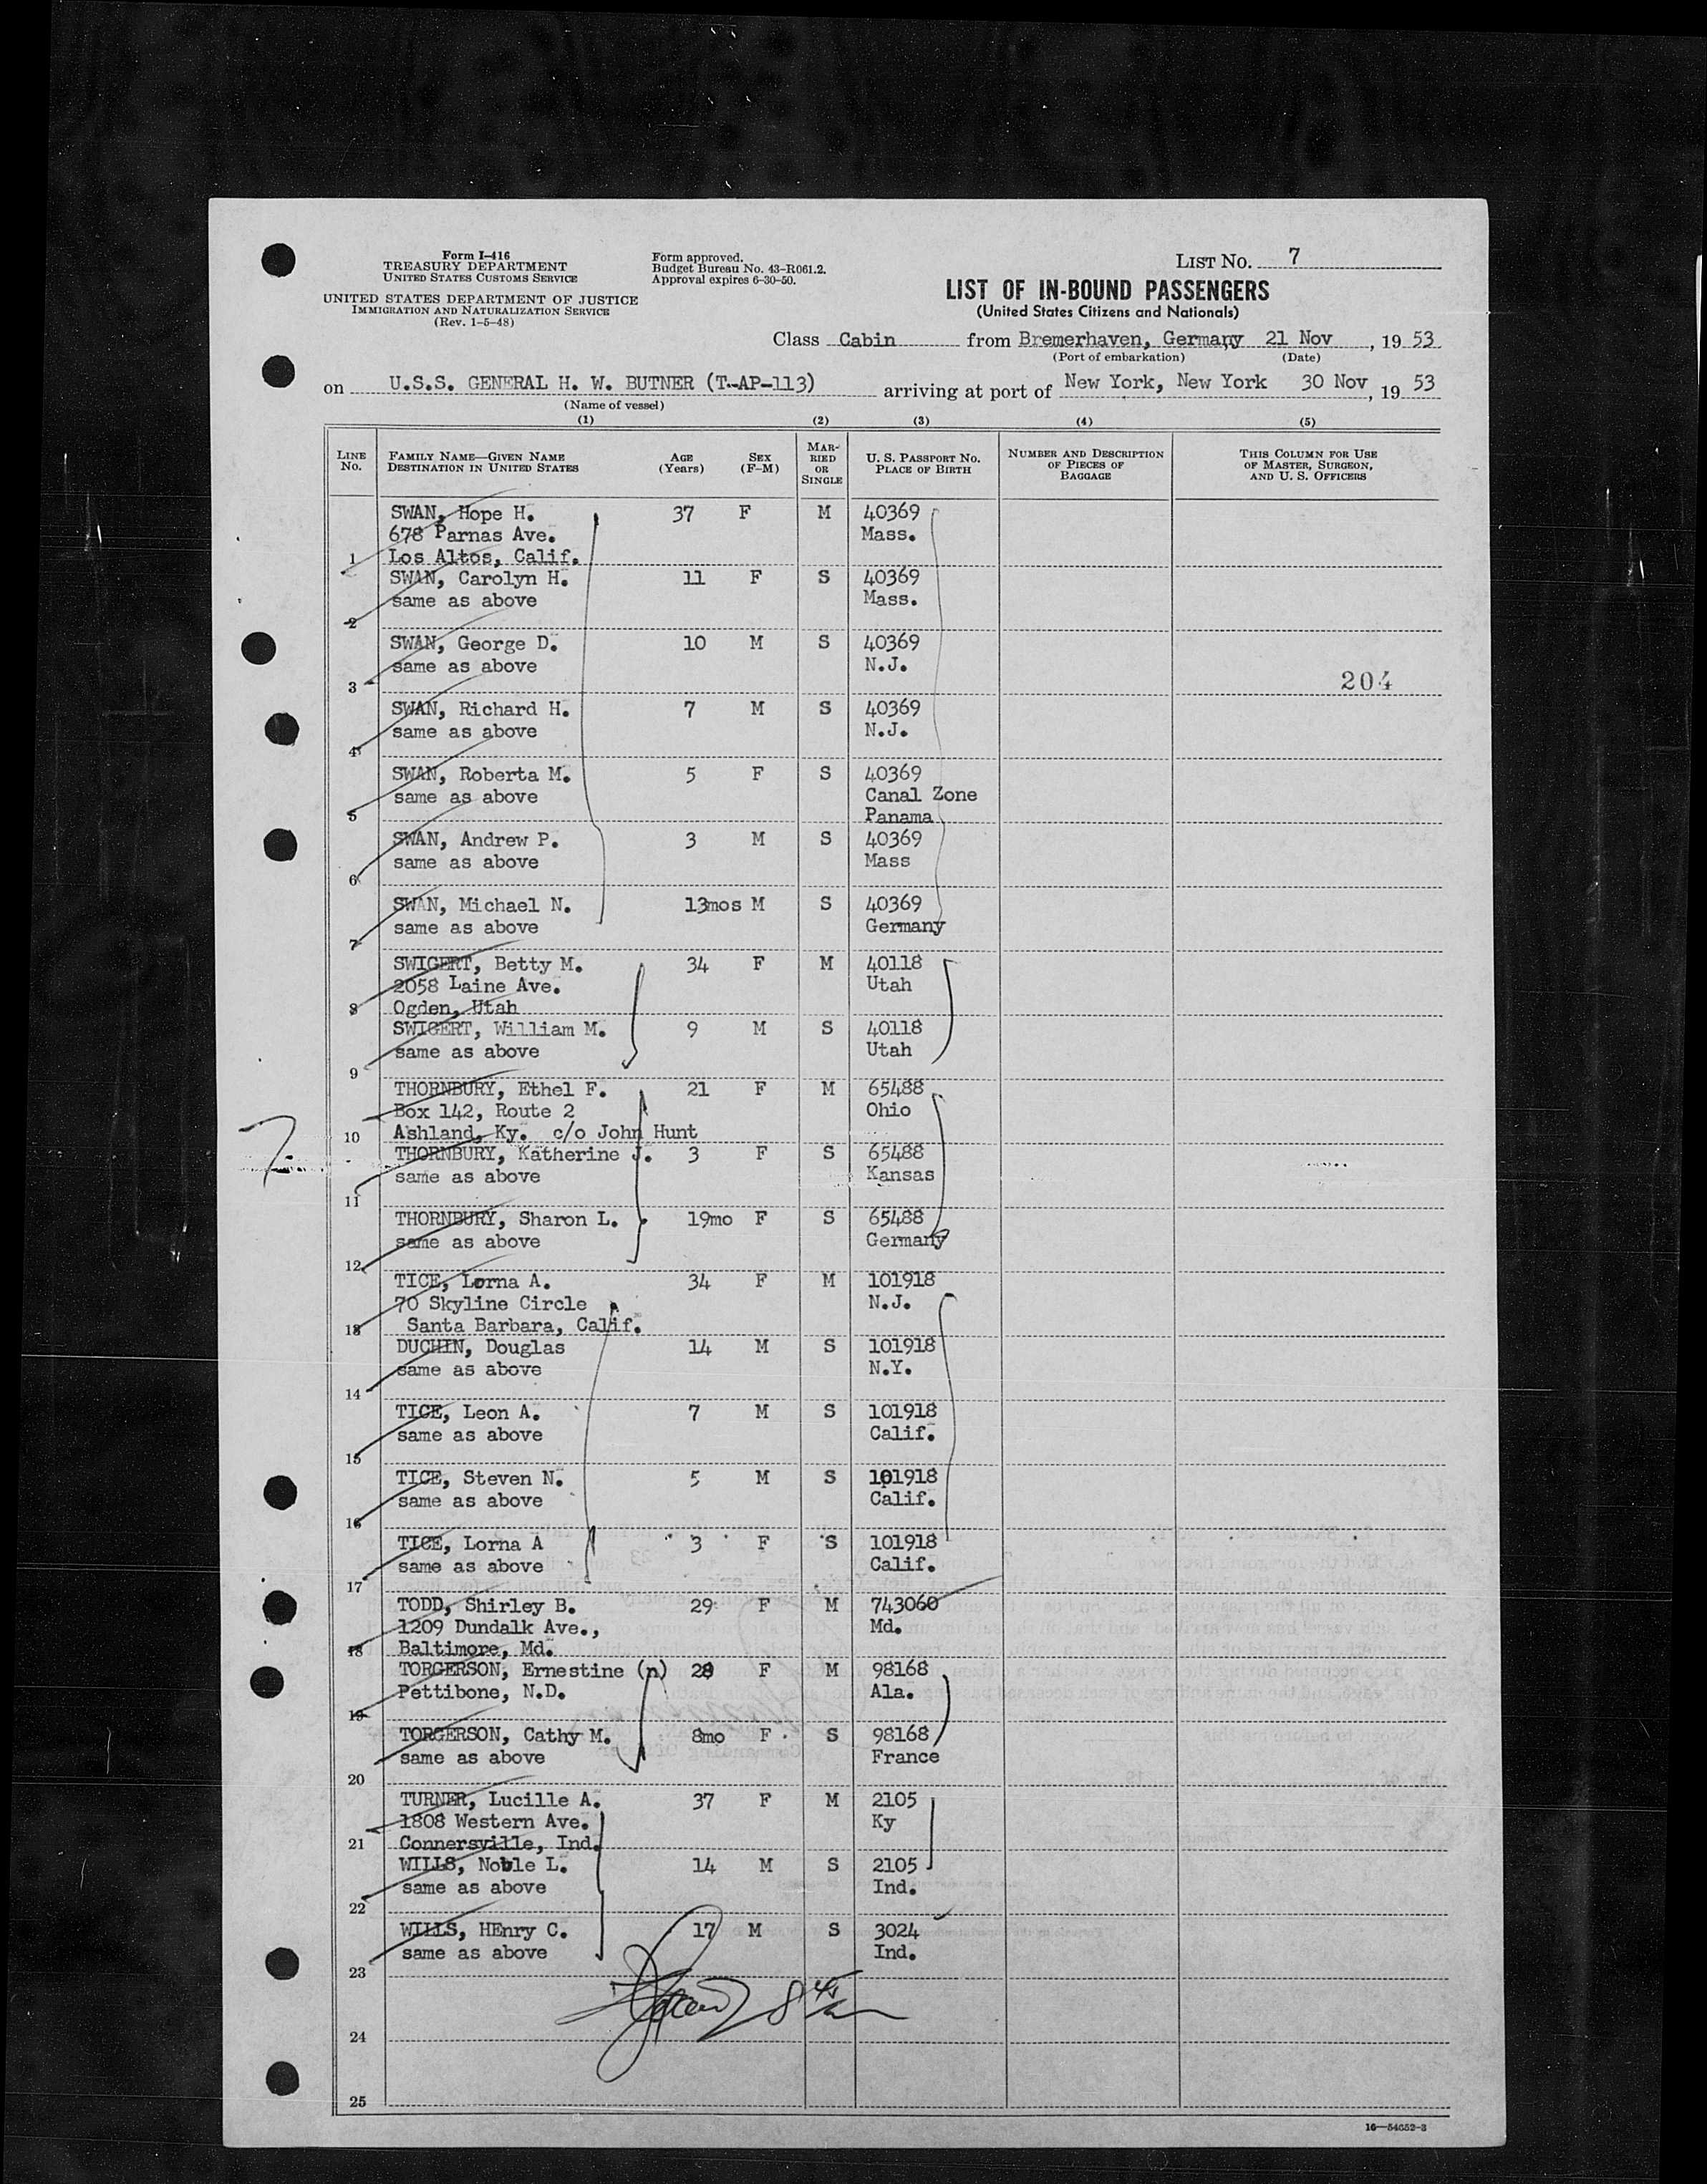 Form I-416
TREASURY DEPARTMENT
UNITED STATES CUSTOMS SERVICE
UNITED STATES DEPARTMENT OF JUSTICE
IMMIGRATION AND NATURALIZATION SERVICE
(Rev. 1-5-48)
Form approved.
Budget Bureau No. 43-R061.2.
Approval expires 6-30-50.
LIST NO. 7
LIST OF IN-BOUND PASSENGERS
(United States Citizens and Nationals)
Class Cabin from Bremerhaven, Germany 21 Nov , 19 53
(Port of embarkation) (Date)
on U.S.S. GENERAL H. W. BUTNER (T-AP-113) arriving at port of New York, New York 30 Nov , 19 53
(Name of vessel)
(1) (2) (3) (4) (5)
LINE No. FAMILY NAME—GIVEN NAME DESTINATION IN UNITED STATES AGE (Years) SEX (F-M) MARRIED OR SINGLE U. S. PASSPORT NO. PLACE OF BIRTH NUMBER AND DESCRIPTION OF PIECES OF BAGGAGE THIS COLUMN FOR USE OF MASTER, SURGEON, AND U. S. OFFICERS
SWAN, Hope H. 37 F M 40369
678 Parnas Ave. Mass.
1 Los Altos, Calif.
SWAN, Carolyn H. 11 F S 40369
same as above Mass.
2
SWAN, George D. 10 M S 40369
same as above N.J.
3 204
SWAN, Richard H. 7 M S 40369
same as above N.J.
4
SWAN, Roberta M. 5 F S 40369
same as above Canal Zone
5 Panama
SWAN, Andrew P. 3 M S 40369
same as above Mass
6
SWAN, Michael N. 13mos M S 40369
same as above Germany
7
SWIGERT, Betty M. 34 F M 40118
2058 Laine Ave. Utah
8 Ogden, Utah
SWIGERT, William M. 9 M S 40118
same as above Utah
9
THORNBURY, Ethel F. 21 F M 65488
Box 142, Route 2 Ohio
10 Ashland, Ky. c/o John Hunt
THORNBURY, Katherine J. 3 F S 65488
same as above Kansas
11
THORNBURY, Sharon L. 19mo F S 65488
same as above Germany
12
TICE, Lorna A. 34 F M 101918
70 Skyline Circle N.J.
13 Santa Barbara, Calif.
DUCHIN, Douglas 14 M S 101918
same as above N.Y.
14
TICE, Leon A. 7 M S 101918
same as above Calif.
15
TICE, Steven N. 5 M S 101918
same as above Calif.
16
TICE, Lorna A 3 F S 101918
same as above Calif.
17
TODD, Shirley B. 29 F M 743060
1209 Dundalk Ave., Md.
18 Baltimore, Md.
TORGERSON, Ernestine (n) 28 F M 98168
Pettibone, N.D. Ala.
19
TORGERSON, Cathy M. 8mo F S 98168
same as above France
20
TURNER, Lucille A. 37 F M 2105
1808 Western Ave. Ky
21 Connersville, Ind.
WILLS, Noble L. 14 M S 2105
same as above Ind.
22
WILLS, HEnry C. 17 M S 3024
same as above Ind.
23
24
25
16—54652-3